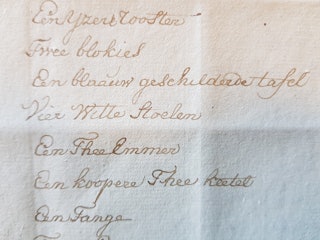 Een Yzere Rooster
Twee blokies
Een blaauw geschilderde tafel
Vier Witte Stoelen
Een Thee Emmer
Een koopere Thee keetel
Een Tange